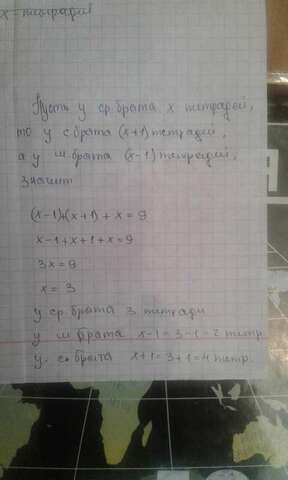 x - тетрадей
Пусть у ср. брата x тетрадей,
то у с брата (x+1) тетрадей,
а у м брата (x-1) тетрадей,
значит
(x-1)+(x+1)+x=9
x-1+x+1+x=9
3x=9
x=3
у ср. брата 3 тетради
у м брата x-1=3-1=2 тетр.
у с. брата x+1=3+1=4 тетр.